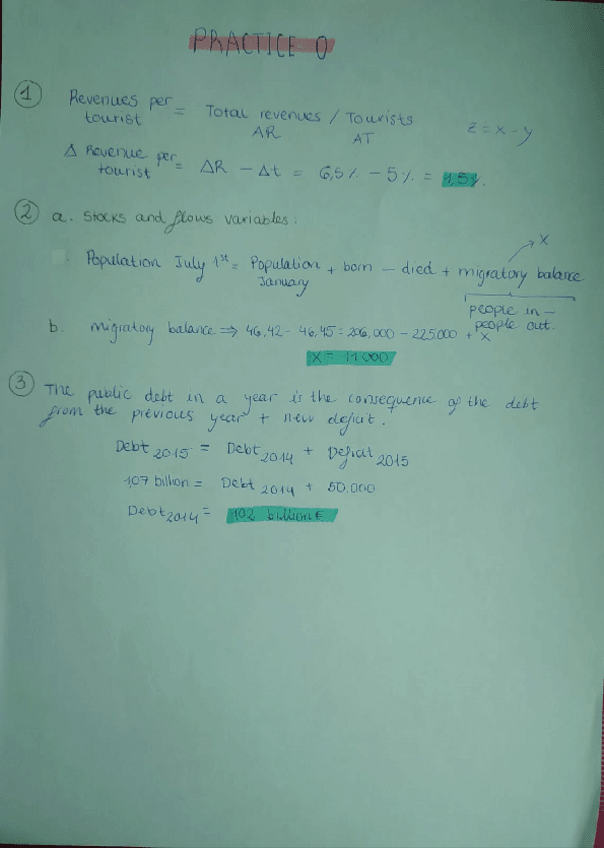 PRACTICE 0
1 Revenues per tourist = Total revenues / Tourists
AR AT z = x - y
Δ Revenue per tourist = ΔR - Δt = 6,5% - 5% = 1,5%.
2 a. Stocks and flows variables:
x
Population July 1st = Population January + born - died + migratory balance
people in - people out.
b. migratory balance ⇒ 46,42 - 46,45 = 206,000 - 225.000 + x
3 The public debt in a year is the consequence of the debt
from the previous year + new deficit.
Debt 2015 = Debt 2014 + Deficit 2015
1,07 billion = Debt 2014 + 50.000
Debt 2014 = 1,02 billion €